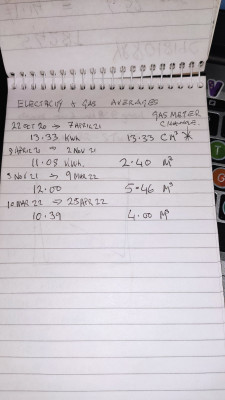 ELECTRICITY & GAS AVERAGES
GAS METER
CHANGE.
22 OCT 20 → 7 APRIL 21
13.33 KWh 13.33 CM³
8 APRIL 21 → 2 NOV 21
11.05 KWh. 2.40 M³
3 NOV 21 → 9 MAR 22
12.00 5.46 M³
10 MAR 22 → 25 APR 22
10.39 4.00 M³